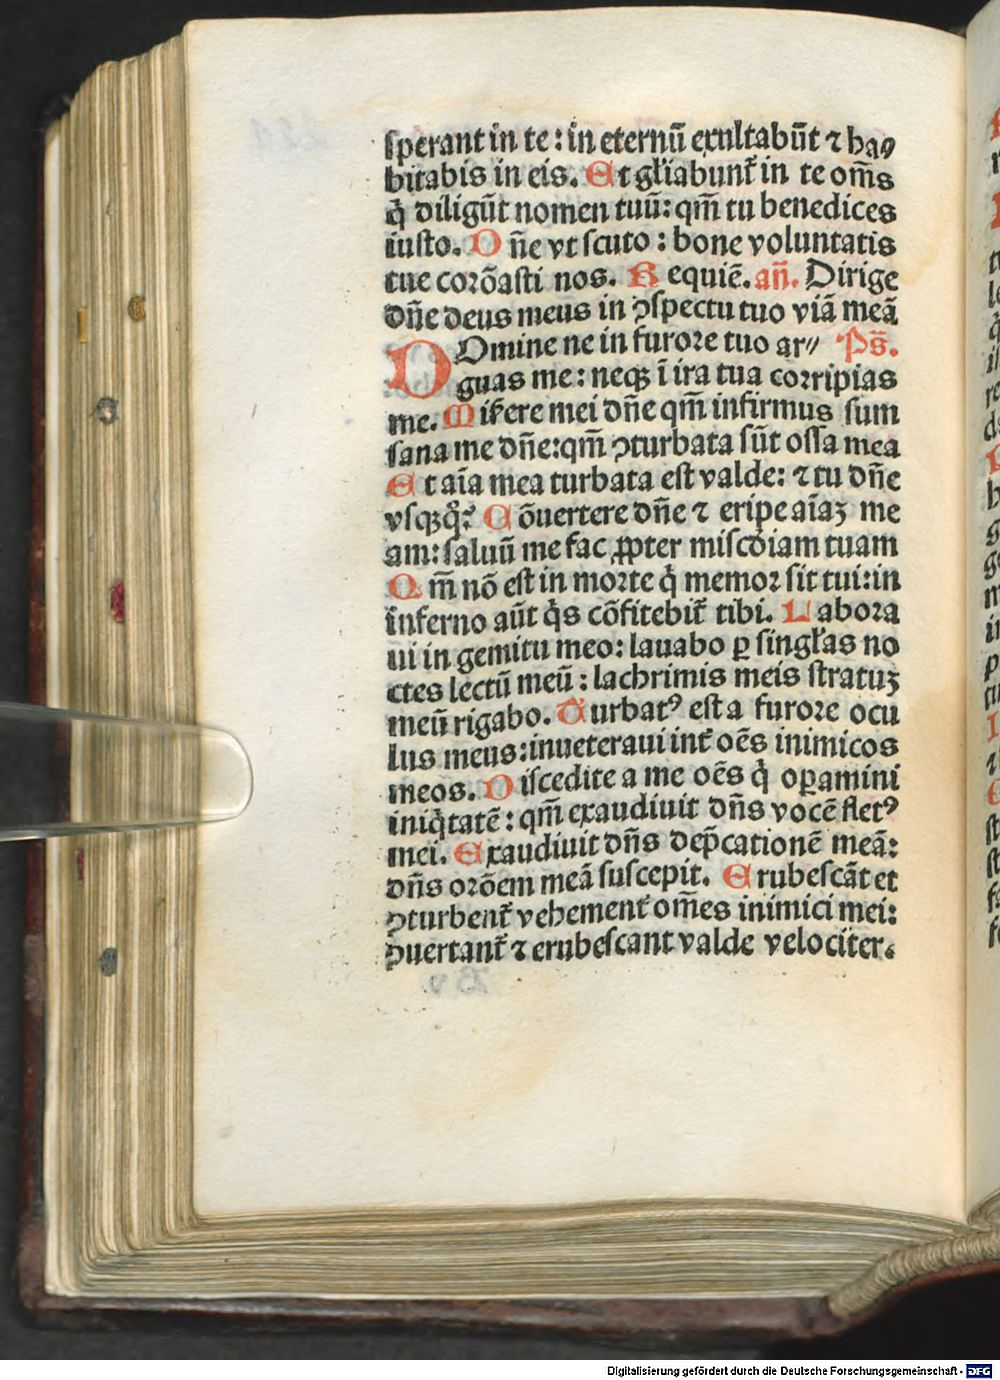 sperant in te : in eternū exultabūt ⁊ ha⸗
bitabis in eis. Et gl'iabunt᷑ in te om̄s
q̇ diligūt nomen tuū: qm̄ tu benedices
iusto. Dn̄e vt scuto : bone voluntatis
tue corōasti nos. Requiē. an̄. Dirige
dn̄e deus meus in ꝯspectu tuo viā meā
DOmine ne in furore tuo ar⸗ Ps̄.
guas me : neqꝫ ī ira tua corripias
me. Mis᷑ere mei dn̄e qm̄ infirmus sum
sana me dn̄e: qm̄ ꝯturbata sūt ossa mea
Et aīa mea turbata est valde: ⁊ tu dn̄e
vsqꝫq̊? Cōuertere dn̄e ⁊ eripe aīaꝫ me
am: saluū me fac ꝓpter mis̄cdiam tuam
Qm̄ nō est in morte q̇ memor sit tui: in
inferno aūt q̇s cōfitebit᷑ tibi. Labora
ui in gemitu meo: lauabo ꝑ singl'as no
ctes lectū meū : lachrimis meis stratuꝫ
meū rigabo. Turbatꝰ est a furore ocu
lus meus: inueteraui int᷑ oēs inimicos
meos. Discedite a me oēs q̇ oꝑamini
iniq̇tatē : qm̄ exaudiuit dn̄s vocē fletꝰ
mei. Exaudiuit dn̄s dep̄cationē meā:
dn̄s orōem meā suscepit. Erubescāt et
ꝯturbent᷑ vehement᷑ om̄es inimici mei:
ꝯuertant᷑ ⁊ erubescant valde velociter.
Digitalisierung gefördert durch die Deutsche Forschungsgemeinschaft - DFG